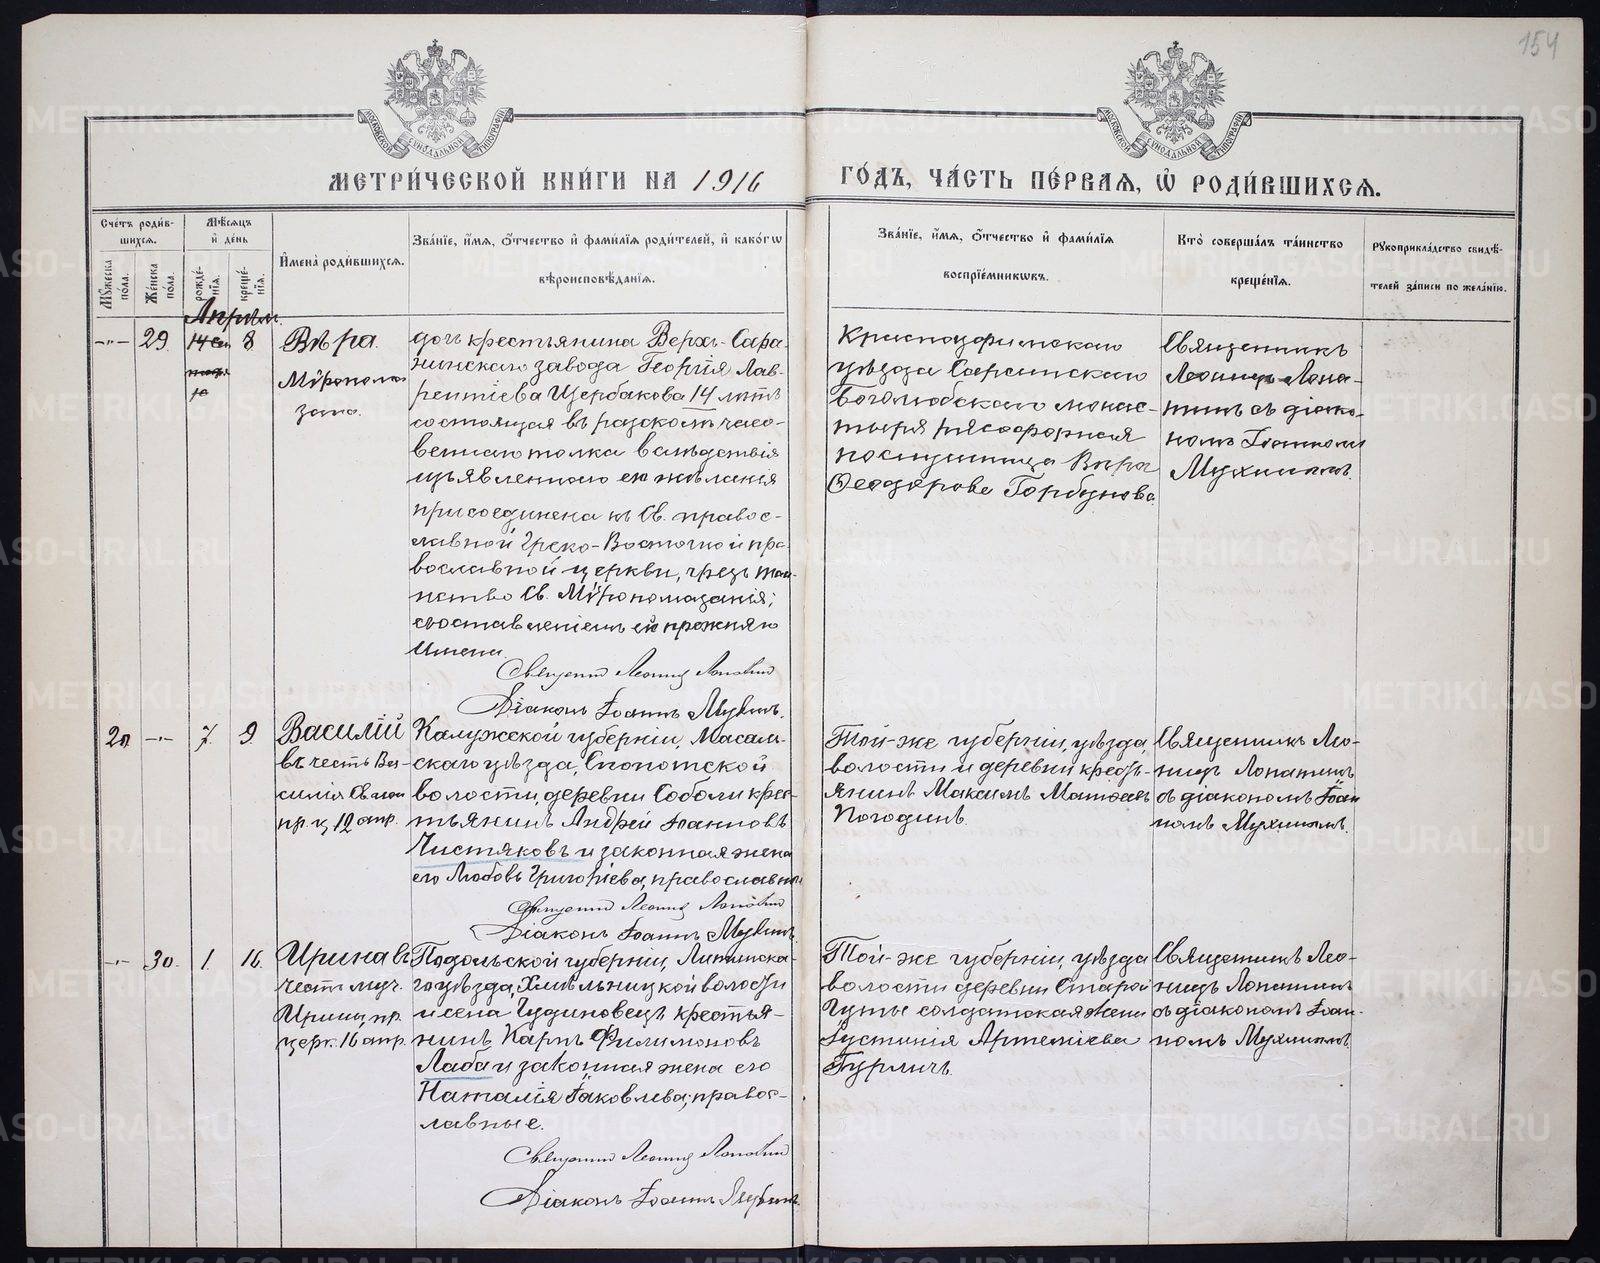 154
МОСКОВСКОЙ СѴНОДАЛЬНОЙ ТИПОГРАФІИ
МОСКОВСКОЙ СѴНОДАЛЬНОЙ ТИПОГРАФІИ
МЕТРИ́ЧЕСКОЙ КНИ́ГИ НА 1916
ГО́ДЪ, ЧА́СТЬ ПЕ́РВАЯ, Ѡ҆ РОДИ́ВШИХСѦ.
Сче́тъ роди́в-
шихсѧ.
Мѣ́сѧцъ
и҆ де́нь
Мꙋ́жеска по́ла.
Же́нска по́ла.
рожде́-нїѧ.
креще́-нїѧ.
И҆мена̀ роди́вшихсѧ.
Зва́нїе, и҆́мѧ, ѻ҆́тчество и҆ фами́лїѧ роди́телей, и҆ како́гѡ
вѣроисповѣ́данїѧ.
Зва́нїе, и҆́мѧ, ѻ҆́тчество и҆ фами́лїѧ
воспрїе́мникѡвъ.
Кто̀ соверша́лъ та́инство
креще́нїѧ.
Рꙋкоприкла́дство свидѣ́-
телей за́писи по жела́нїю.
Апрѣль.
—"— 29. 8
Вѣра.
Мѵропома
зана.
дочь крестьянина Верхъ-Сара-
нинскаго завода Георгія Лав-
рентіева Щербакова 14 лѣтъ
состоящая въ расколѣ часо-
веннаго толка вслѣдствія
изъявленнаго ею желанія
присоединена къ Св. правос-
лавной Греко-Восточной пра-
вославной церкви, чрезъ таи-
нство Св. Мѵропомазанія;
съ оставленіемъ ей прежняго
имени.
Священник Леонид Лопатин
Діаконъ Іоаннъ Мухинъ.
Красноуфимскаго
уѣзда Сарсинскаго
Боголюбскаго монас-
тыря рясофорная
послушница Вѣра
Ѳеодорова Горбунова.
Священникъ
Леонидъ Лопа-
тинъ съ діако-
номъ Іоанномъ
Мухинымъ.
20. —"— 7. 9.
Василій
въ честь Ва-
силія Св.
пр. ц. 12 апр.
Калужской губерніи, Масаль-
скаго уѣзда,
волости, деревни Соболи крес-
тьянинъ Андрей Іоанновъ
Чистяковъ и законная жена
его Любовь Григоріева, православные
Священник Леонид Лопатин
Діаконъ Іоаннъ Мухинъ.
Той-же губерніи, уѣзда,
волости и деревни кресть-
янинъ Максимъ Матѳеевъ
Погодинъ.
Священникъ Лео-
нидъ Лопатинъ
съ діакономъ Іоан-
номъ Мухинымъ.
—"— 30. 1. 16.
Ирина въ
честь муч.
Ирины, пр.
церк. 16 апр.
Подольской губерніи, Литинска-
го уѣзда, Хмѣльницкой волости
и села Чудиновецъ крестья-
нинъ Карпъ Филимоновъ
Лаба и законная жена его
Наталія Іаковлева; правос-
лавные.
Священник Леонид Лопатин
Діаконъ Іоаннъ Мухинъ.
Той-же губерніи, уѣзда
волости деревни Старой
Гуты солдатская жена
Іустинія Артеміева
Гурличъ.
Священникъ Лео-
нидъ Лопатинъ
съ діакономъ Іоан-
номъ Мухинымъ.
METRIKI.GASO-URAL.RU